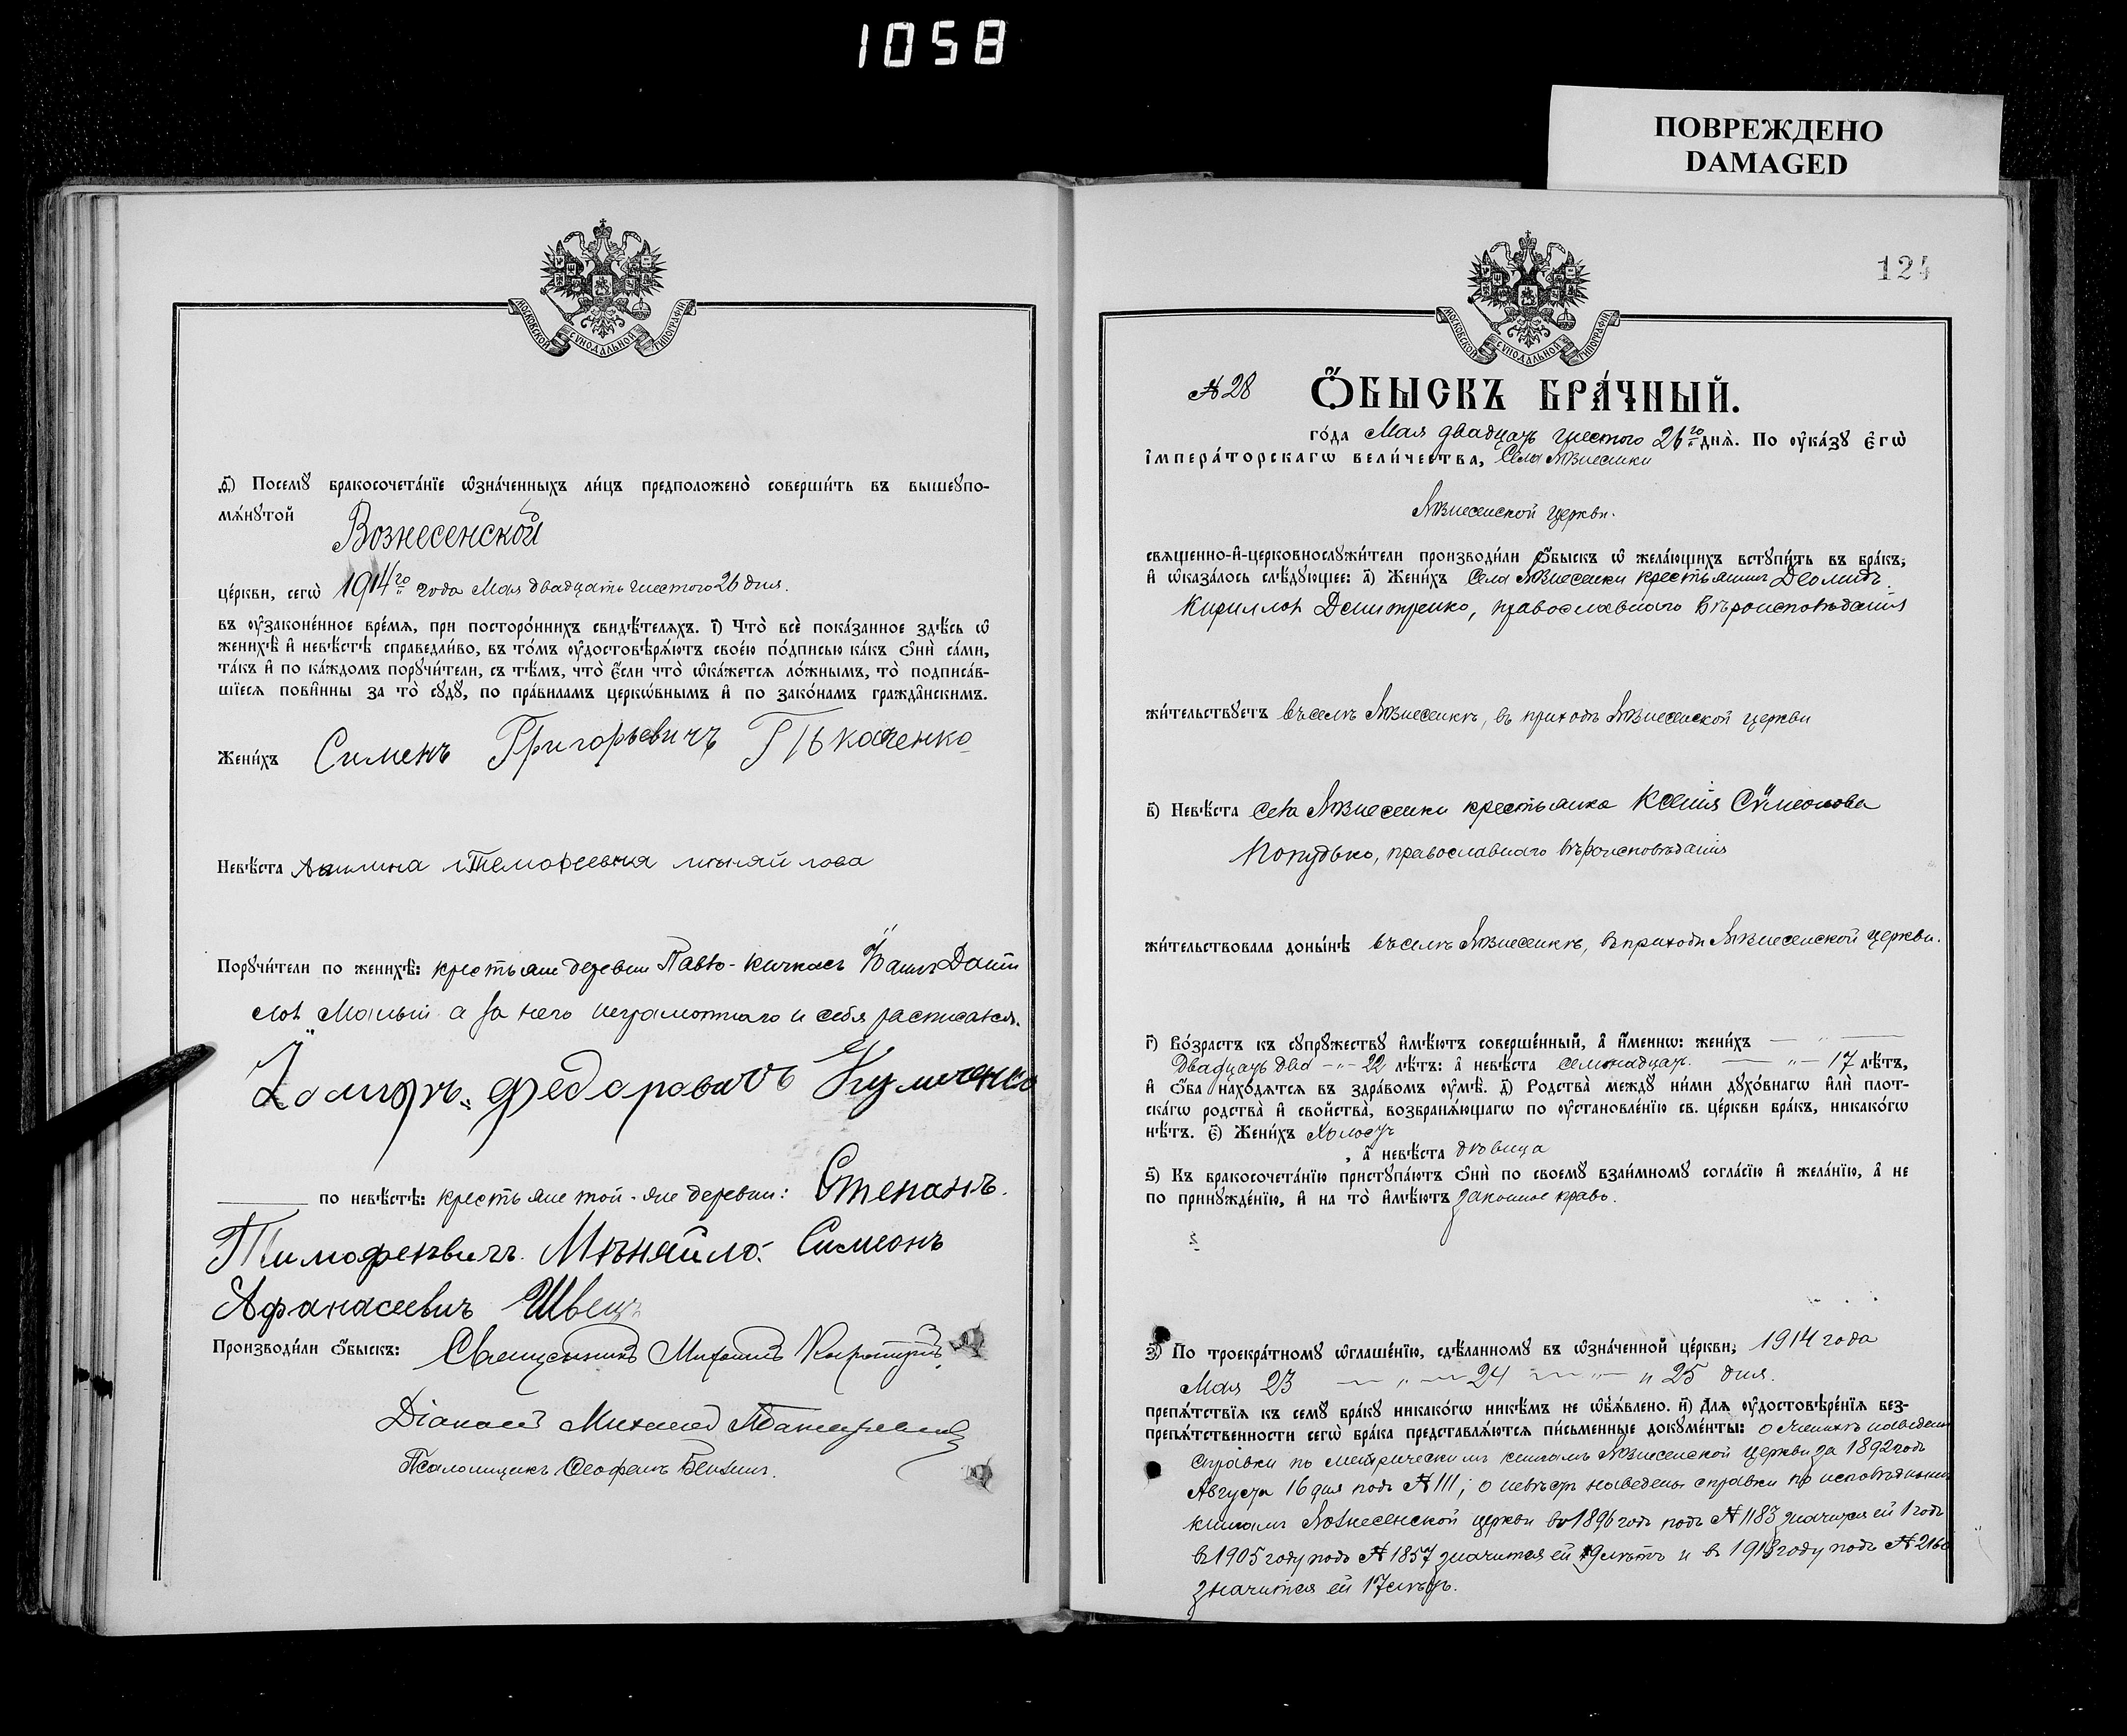 1058
ПОВРЕЖДЕНО
DAMAGED
МОСКОВСКОЙ СѴНОДАЛЬНОЙ ТИПОГРАФІИ
Посемꙋ бракосочета́нїе ѡ҆зна́ченныхъ ли́цъ предположено̀ соверши́ть въ вышеꙋпо-
мѧ́нꙋтой
Вознесенской
це́ркви, сегѡ̀ 1914го года Мая двадцать шестого 26 дня.
въ ᲂу҆законе́нное вре́мѧ, при посторо́ннихъ свидѣ́телѧхъ. і҃) Что̀ всѐ пока́занное здѣ́сь ѡ҆
женихѣ̀ и҆ невѣ́стѣ справедли́во, въ то́мъ ᲂу҆достовѣрѧ́ютъ свое́ю по́дписью ка́къ ѻ҆нѝ са́ми,
та́къ и҆ по ка́ждомъ порꙋчи́тели, съ тѣ́мъ, что̀ є҆́сли что̀ ѡ҆ка́жетсѧ ло́жнымъ, то̀ подписа́в-
шїесѧ пови́нны за то̀ сꙋдꙋ̀, по пра́виламъ церко́внымъ и҆ по зако́намъ гражда́нскимъ.
Жени́хъ Сименъ Григорьевичъ Ткаченко
Невѣ́ста Акилина Темофеевна мѣняйлова
Порꙋчи́тели по женихѣ̀: крестьяне деревни Павло-Кичкасъ Иванъ Дани
лов Малый а за него неграмотного и себя расписался.
Федаровичъ
по невѣ́стѣ: крестьяне той-же деревни: Степанъ.
Тимофеевичъ. Мѣняйло. Симеонъ
Афанасиевичъ Швец
Производи́ли ѻ҆́быскъ: Священникъ Михаилъ
Діаконъ Михаилъ
Псаломщикъ Ѳеофанъ
124
МОСКОВСКОЙ СѴНОДАЛЬНОЙ ТИПОГРАФІИ
№ 28 Ѻ҆́БЫСКЪ БРА́ЧНЫЙ.
го́да Мая двадцать шестого 26го днѧ̀. По ᲂу҆ка́зꙋ є҆гѡ̀
і҆мпера́торскагѡ вели́чества, Села Вознесенки
Вознесенской церкви.
свѧщенно-и҆-церковнослꙋжи́тели производи́ли ѻ҆́быскъ ѡ҆ жела́ющихъ встꙋпи́ть въ бра́къ,
и҆ ѡ҆каза́лось слѣ́дꙋющее: а҃) Жени́хъ села Вознесенки крестьянинъ Деомидъ
Кириллов Дмитренко, православнаго вѣроисповѣданія
жи́тельствꙋетъ въ селѣ Вознесенкѣ, въ приходѣ Вознесенской церкви
в҃) Невѣ́ста села Вознесенки крестьянка Ксенія Сѵмеонова
православнаго вѣроисповѣданія
жи́тельствовала доны́нѣ въ селѣ Вознесенкѣ, въ приходѣ Вознесенской церкви.
г҃) Во́зрастъ къ сꙋпрꙋ́жествꙋ и҆мѣ́ютъ соверше́нный, а҆ и҆́менно: жени́хъ
двадцать два 22 лѣ́тъ: а҆ невѣ́ста семнадцать 17 лѣ́тъ,
и҆ ѻ҆́ба нахо́дѧтсѧ въ здра́вомъ ᲂу҆мѣ̀. д҃) Родства̀ междꙋ̀ ни́ми дꙋхо́внагѡ и҆лѝ плот-
ска́гѡ родства̀ и҆ сво́йства̀, возбранѧ́ющагѡ по ᲂу҆становле́нїю св. це́ркви бра́къ, никако́гѡ
нѣ́тъ. є҃) Жени́хъ холостъ
, а҆ невѣ́ста дѣвица
ѕ҃) Къ бракосочета́нїю пристꙋпа́ютъ ѻ҆нѝ по своемꙋ̀ взаи́мномꙋ согла́сїю и҆ жела́нїю, а҆ не
по принꙋжде́нїю, и҆ на то̀ и҆мѣ́ютъ законное право.
з҃) По троекра́тномꙋ ѡ҆глаше́нїю, сдѣ́ланномꙋ въ ѡ҆зна́ченной це́ркви, 1914 года
Мая 23 24 и 25 дня.
препѧ́тствїѧ къ семꙋ̀ бра́кꙋ никако́гѡ никѣ́мъ не ѡ҆бъѧ́влено. и҃) Для ᲂу҆достовѣре́нїѧ без-
препѧ́тственности сегѡ̀ бра́ка представлѧ́ютсѧ пи́сьменные докꙋме́нты: о женихѣ наведены
справки по метрическимъ книгамъ Вознесенской церкви за 1892 годъ
Августа 16 дня подъ № 111; о невѣстѣ наведены справки по исповѣднымъ
книгамъ Вознесенской церкви въ 1896 годъ подъ № 1183 значится ей 1 годъ
въ 1905 году подъ № 1857 значится ей 9 лѣтъ и въ 1913 году подъ №
значится ей 17 лѣтъ.